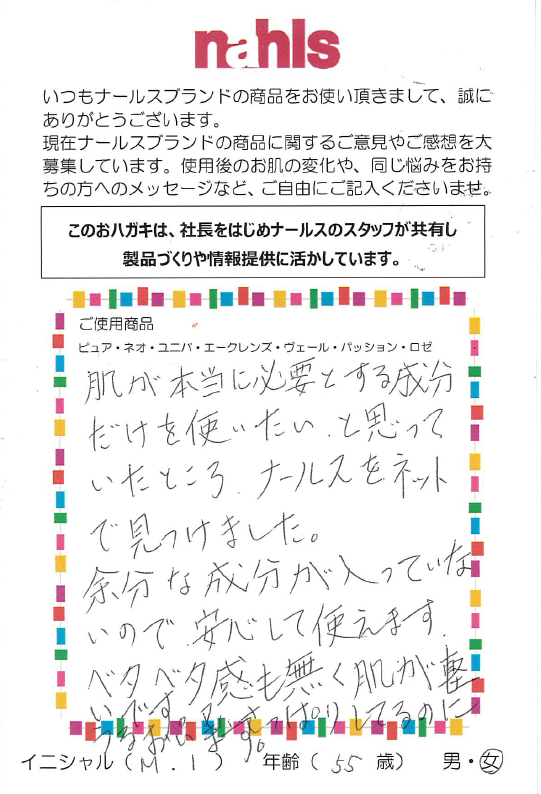 nahls
いつもナールスブランドの商品をお使い頂きまして、誠に
ありがとうございます。
現在ナールスブランドの商品に関するご意見やご感想を大
募集しています。使用後のお肌の変化や、同じ悩みをお持
ちの方へのメッセージなど、ご自由にご記入くださいませ。
このおハガキは、社長をはじめナールスのスタッフが共有し
製品づくりや情報提供に活かしています。
ご使用商品
ピュア・ネオ・ユニバ・エークレンズ・ヴェール・パッション・ロゼ
肌が本当に必要とする成分
だけを使いたい、と思って
いたところ、ナールスをネット
で見つけました。
余分な成分が入っていな
いので、安心して使えます。
ベタベタ感も無く肌が軽
いです。さっぱりしてるのに
うるおいます。
イニシャル(M.I) 年齢(55歳) 男・女